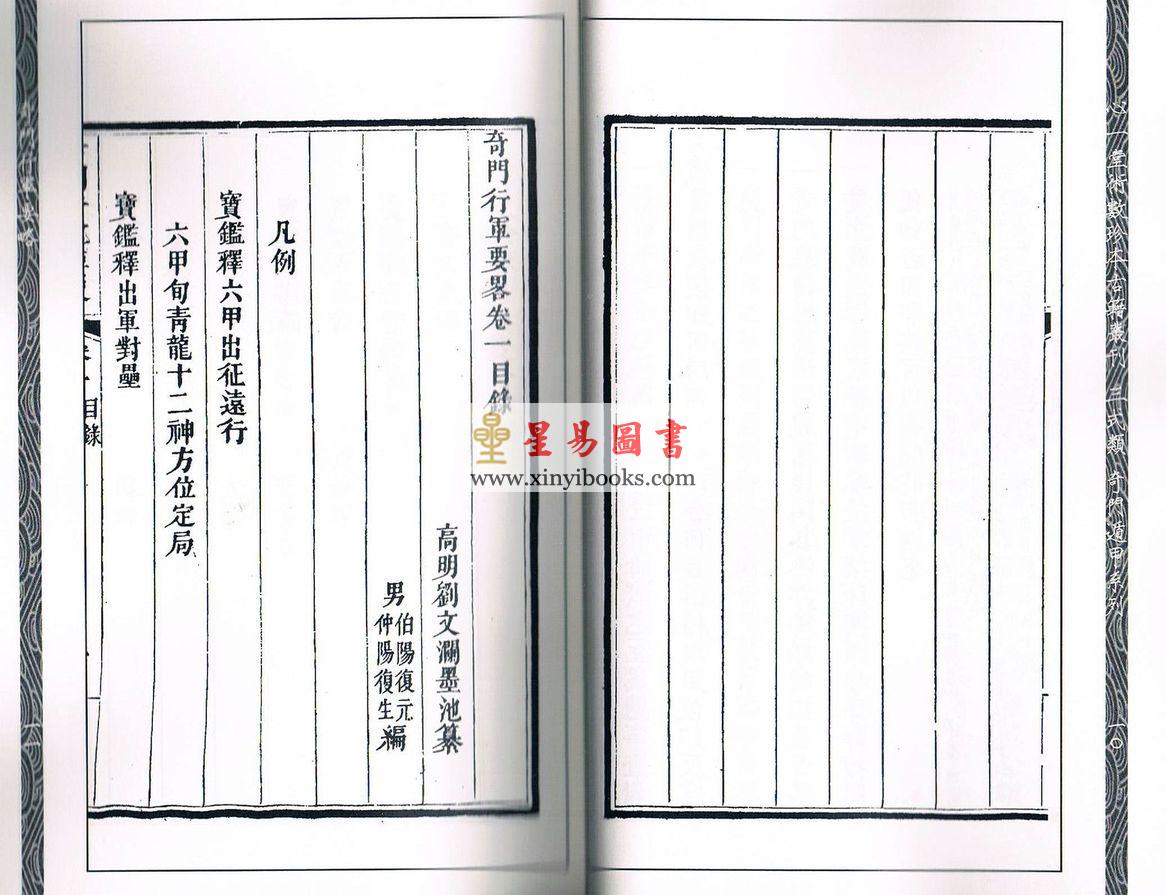 心一堂術數珍本古籍叢刊 三式類 奇門遁甲系列
一〇
奇門行軍要畧卷一目錄
高明劉文瀾墨池纂
男伯陽復元
仲陽復生編
凡例
寶鑑釋六甲出征遠行
六甲旬青龍十二神方位定局
寶鑑釋出軍對壘
目錄
奇門行軍要略
一一
星易圖書
www.xinyibooks.com